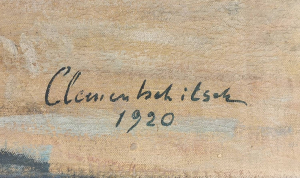 Clementschitsch
1920